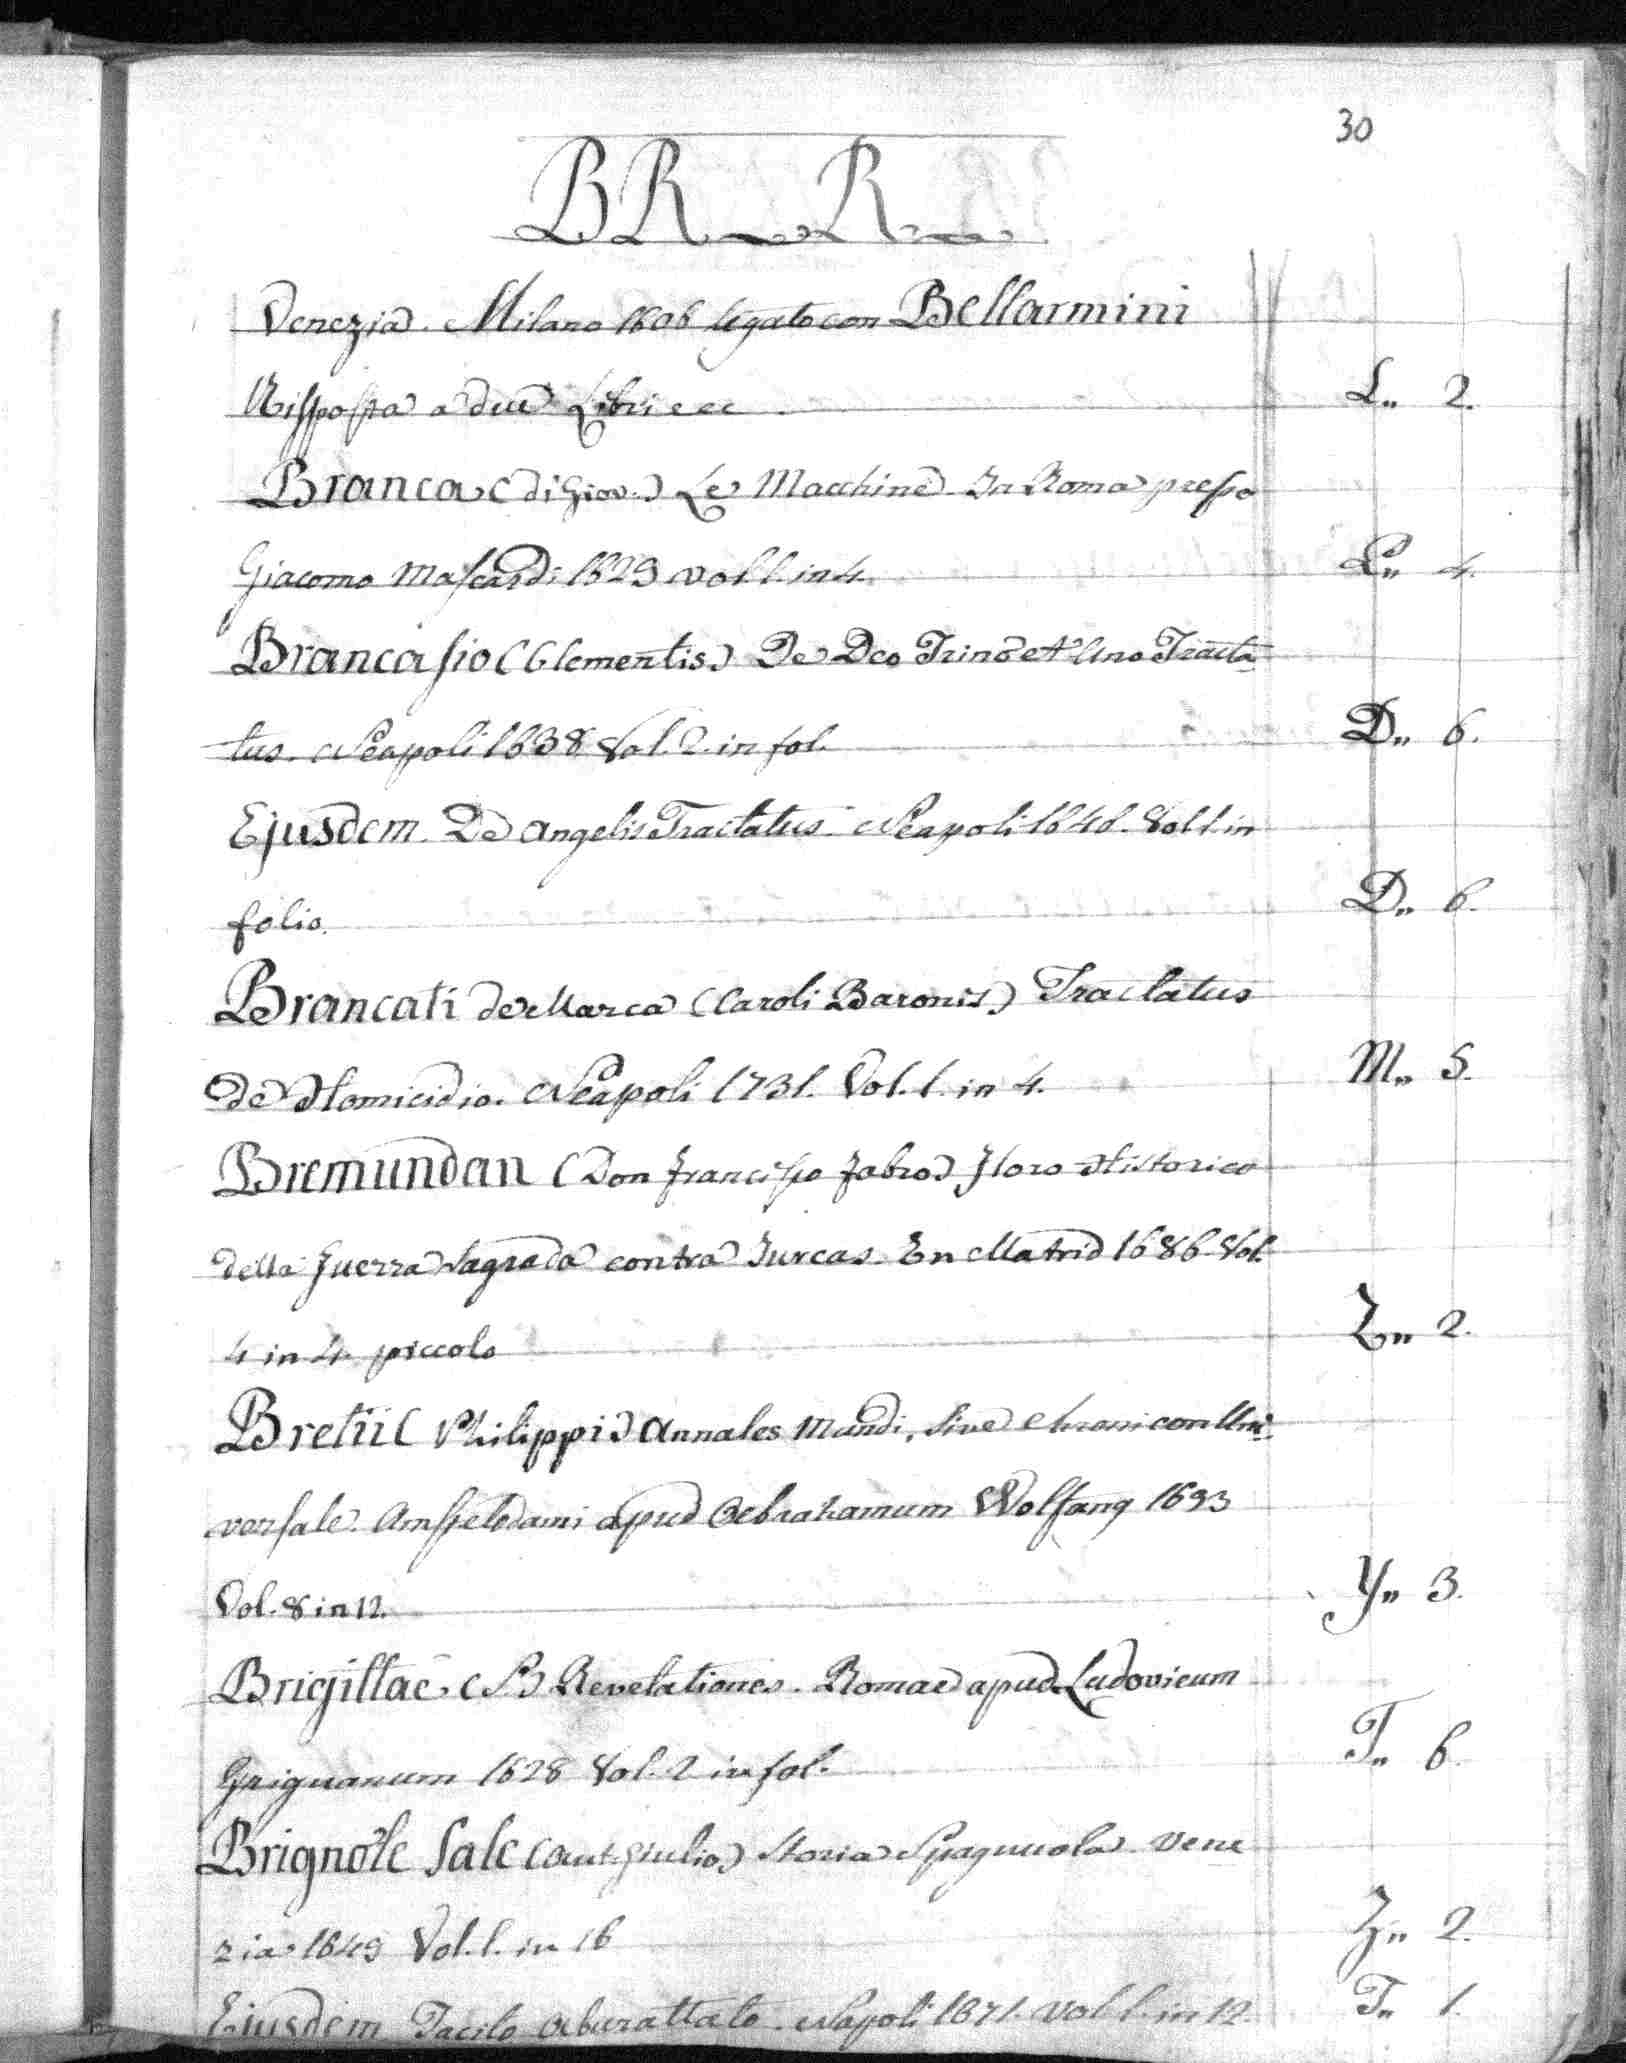 30
BR R
Venezia. Milano 1606 legato con Bellarmini
Risposta a due Libri ecc L,, 2.
Branca (di Giov.) Le Macchine. In Roma presso
Giacomo Mascardi 1629 vol 1. in 4. L,, 4.
Brancasio (Clementis) De Deo Trino et Uno Tracta-
tus. Neapoli 1638 Vol. 2. in fol. D,, 6.
Ejusdem. De Angelis Tractatus. Neapoli 1646. Vol 1. in
folio. D,, 6.
Brancati de Marca (Caroli Baronis) Tractatus
de Homicidio. Neapoli 1731. Vol. 1. in 4. M,, 5.
Bremundan (Don Francisco Fabro) Floro Historico
della Guerra Sagrada contra Turcas. En Matrid 1686. Vol.
4 in 4. piccolo Z,, 2.
Bretii (Philippi) Annales Mundi, sive chronicon Uni-
versale. Amstelodami apud Aebrahamum Wolfang 1693
Vol. 8 in 12. Y,, 3.
Brigittae (S) Revelationes. Romae apud Ludovicum
Grignanum 1628 Vol. 2 in fol. T,, 6.
Brignole Sale (Ant. Giulio) Storia Spagnuola. Vene
zia 1649 Vol. 1. in 16 Z,, 2.
Ejusdem Tacito Aburattato. Napoli 1671. Vol 1. in 12. T,, 1.